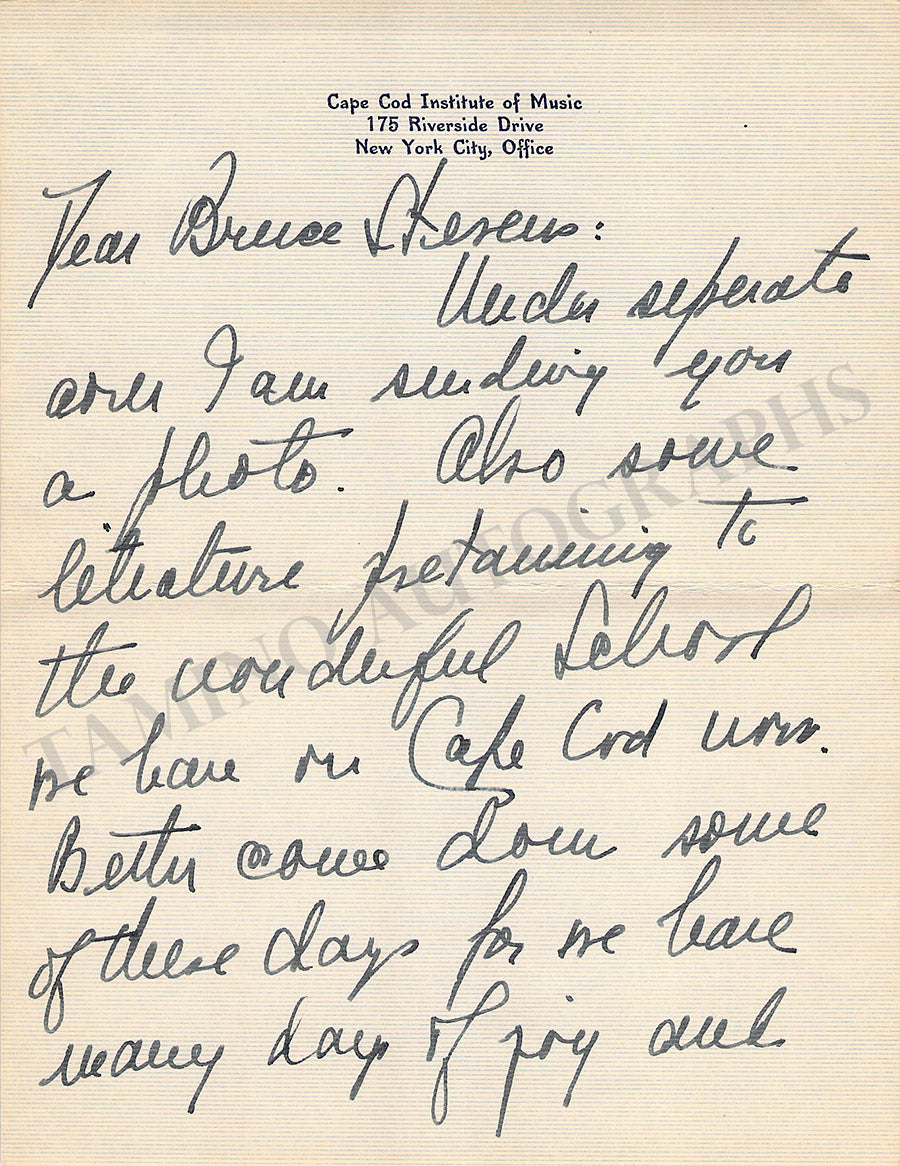 Cape Cod Institute of Music
175 Riverside Drive
New York City, Office
Dear Bruce Stevens:
Under seperate
cover I am sending you
a photo. Also some
literature pretaining to
the wonderful School
we have on Cape Cod now.
Better come down some
of these days for we have
many days of joy and
TAMINO AUTOGRAPHS